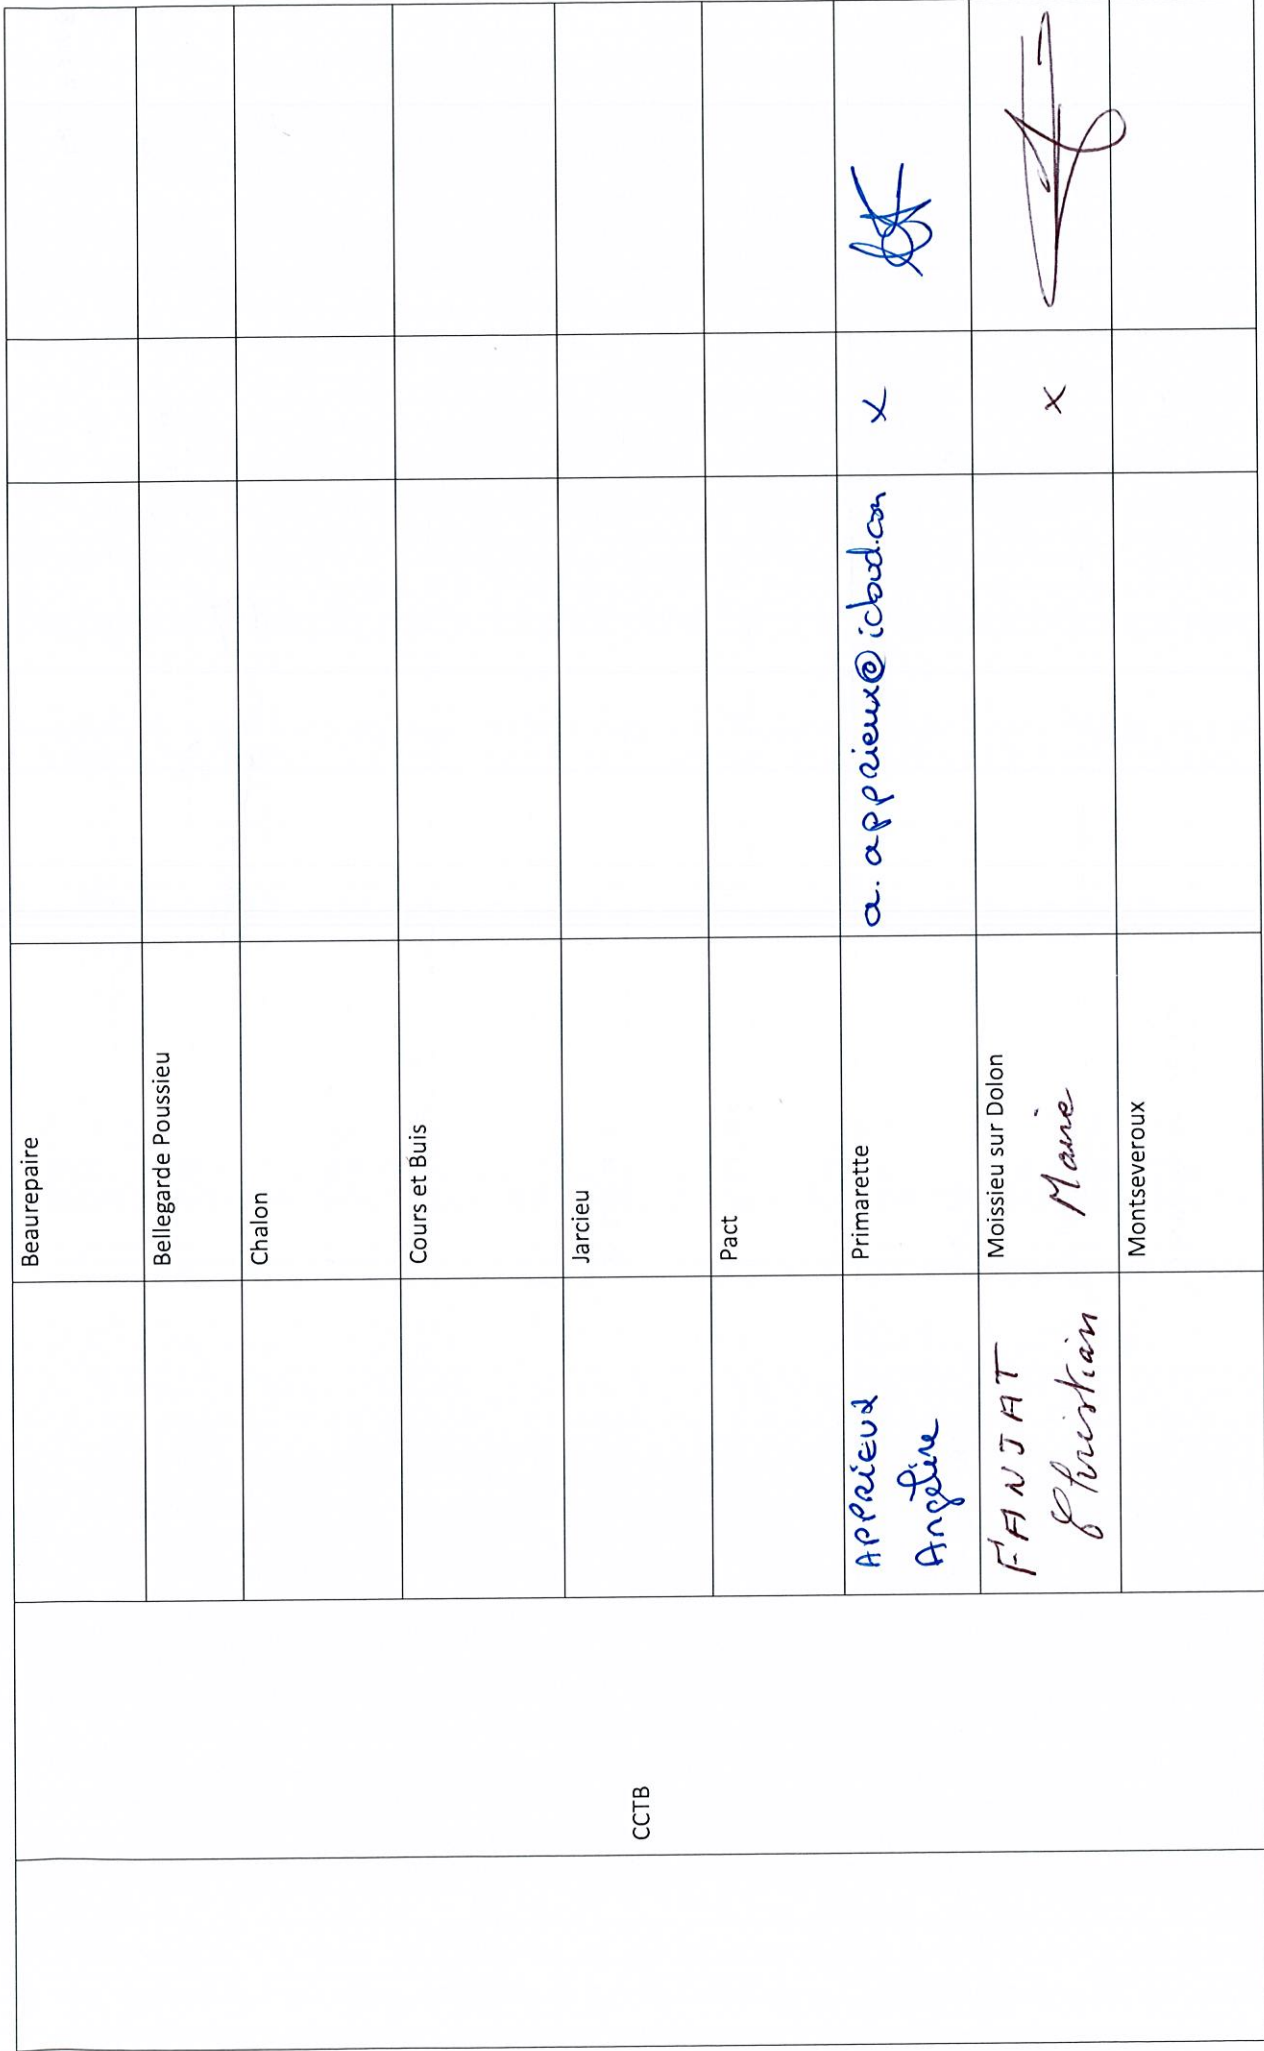 Beaurepaire
Bellegarde Poussieu
Chalon
Cours et Buis
Jarcieu
Pact
CCTB
APPRIEUX
Angeline
Primarette
a.apprieux@icloud.com
x
FANJAT
Christian
Moissieu sur Dolon
Maire
x
Montseveroux